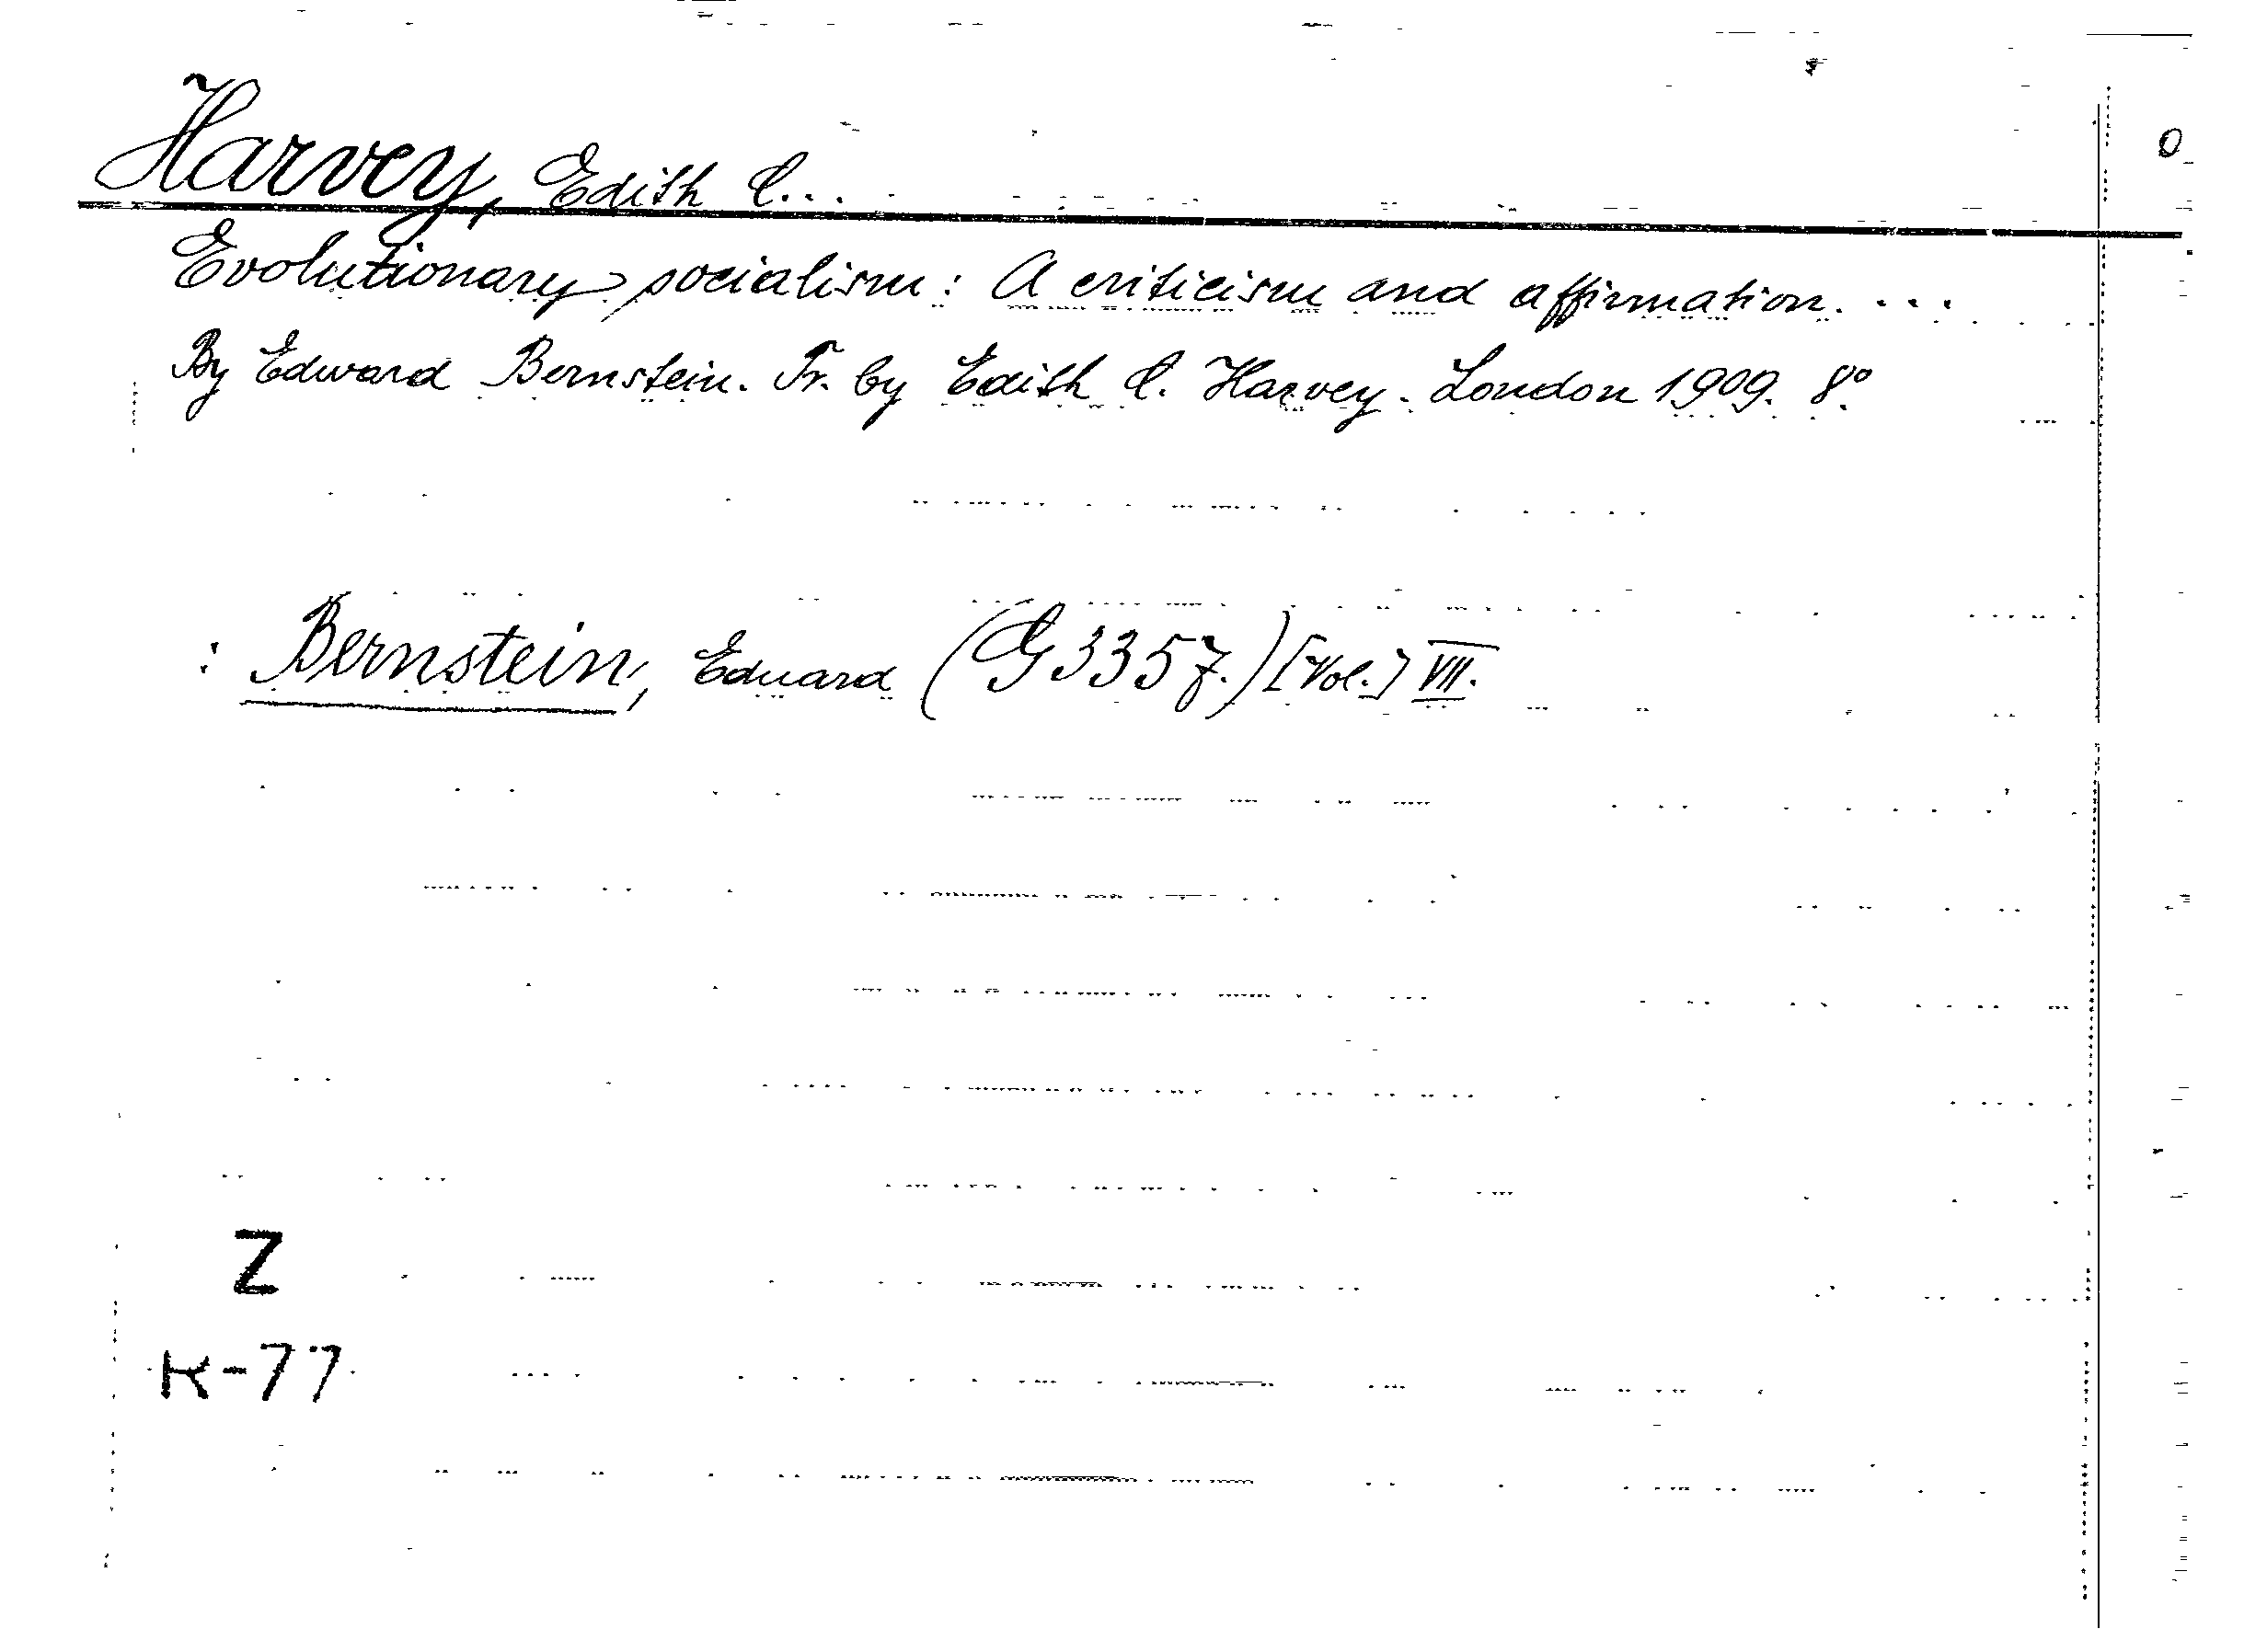 Harvey, Edith C...
0
Evolutionary socialism: A criticism and affirmation. ...
By Edward Bernstein. Tr. by Edith C. Harvey. London 1909. 8º.
: Bernstein, Eduard (G 3357.) [Vol.] VII.
Z
K-77